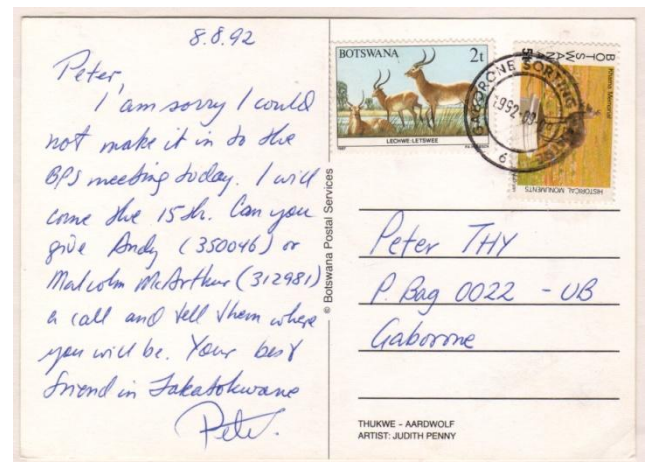 8.8.92
Peter,
I am sorry I could
not make it in to the
BPS meeting today. I will
come the 15th. Can you
give Andy (350046) or
Malcolm McArthur (312981)
a call and tell them where
you will be. Your best
friend in Takatokwane
Peter.
© Botswana Postal Services
BOTSWANA 2t
LECHWE-LETSWEE
GABORONE SORTING
1992-08
BOTSWANA
Khama Memorial
HISTORICAL MONUMENTS
Peter THY
P. Bag 0022 - UB
Gaborone
THUKWE - AARDWOLF
ARTIST: JUDITH PENNY